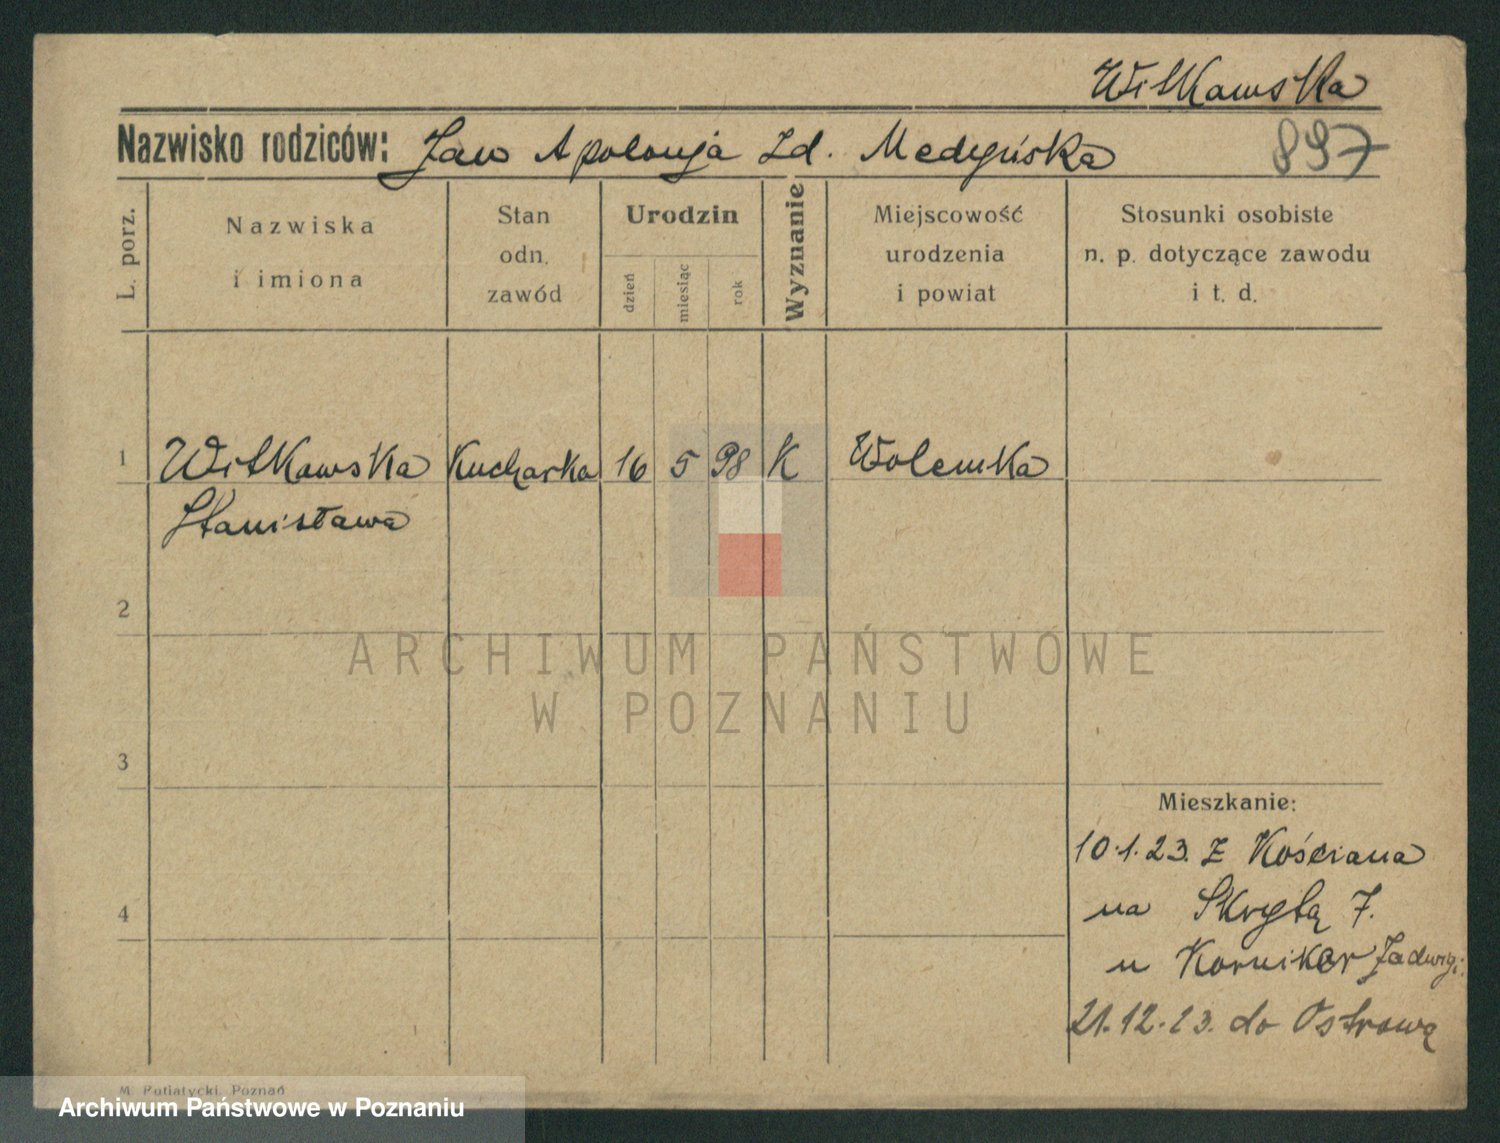 Witkowska
Nazwisko rodziców: Jan Apolonja zd. Medyńska 897
L. porz.
Nazwiska i imiona
Stan odn. zawód
Urodzin
dzień miesiąc rok
Wyznanie
Miejscowość urodzenia i powiat
Stosunki osobiste n. p. dotyczące zawodu i t. d.
1 Witkowska Kucharka 16 5 98 K
Stanisława
2
3
4
Mieszkanie:
10.1.23. z Kościana
na Skrytą 7.
u Korniker Jadwigi
21.12.23. do Ostrowa
M. Putiatycki, Poznań
ARCHIWUM PAŃSTWOWE
W POZNANIU
Archiwum Państwowe w Poznaniu